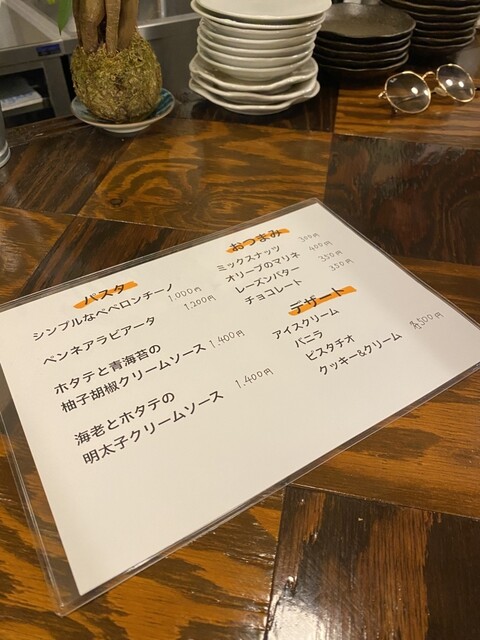 パスタ
シンプルなペペロンチーノ 1,000円
ペンネアラビアータ 1,200円
ホタテと青海苔の
柚子胡椒クリームソース 1,400円
海老とホタテの
明太子クリームソース 1,400円
おつまみ
ミックスナッツ 300円
オリーブのマリネ 400円
レーズンバター 350円
チョコレート 350円
デザート
アイスクリーム
バニラ
ピスタチオ
クッキー&クリーム